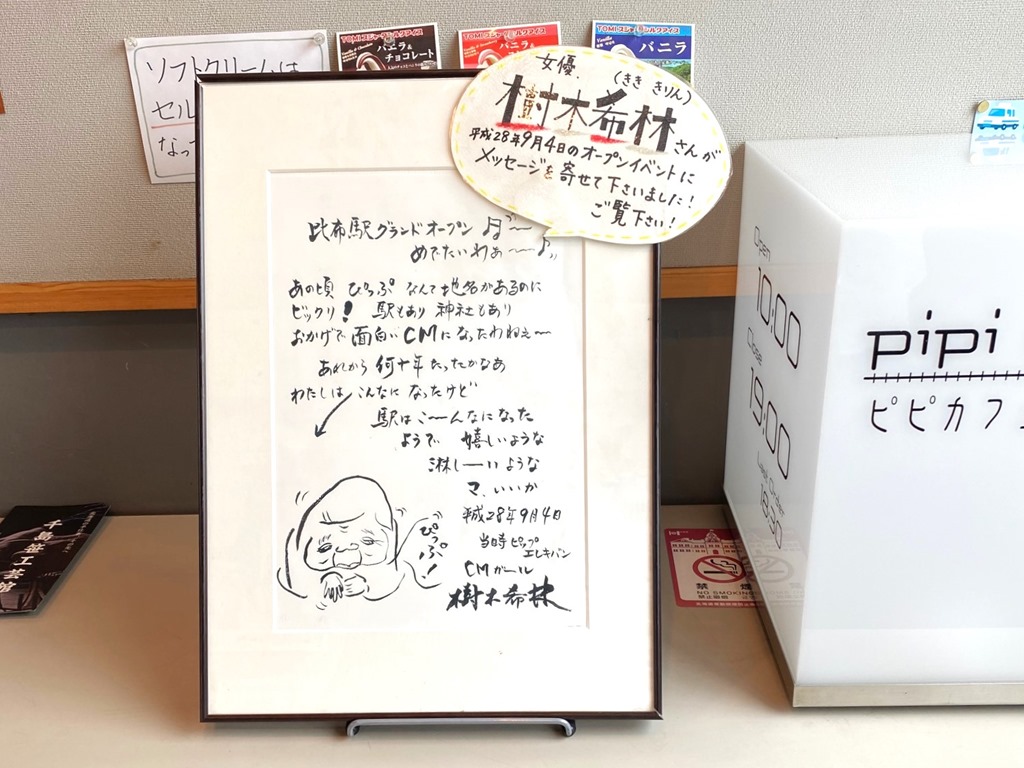 ソフトクリームは
セル
なっ
TOMIスジャータシルクアイス
バニラ&
チョコレート
TOMIスジャータシルクアイス
バニラ&
TOMIスジャータシルクアイス
バニラ
女優、(きき きりん)
樹木希林さんが
平成28年9月4日のオープンイベントに
メッセージを寄せて下さいました!
ご覧下さい!
比布駅グランドオープン
めでたいわぁ〜〜
あの頃 ぴっぷ なんて地名があるのに
ビックリ! 駅もあり 神社もあり
おかげで面白いCMになったわねぇ〜
あれから何十年たったかなあ
わたしは こんなに なったけど
駅はこ〜んなになった
ようで 嬉しいような
淋しーいような
マ、いいか
平成28年9月4日
当時ピップ
エレキバン
CMガール
樹木希林
ぴっぷ!
Open
10:00
Close
19:00
Last Order
18:30
pipi
ピピカフェ
禁煙
NO SMOKING
千島笹工芸館